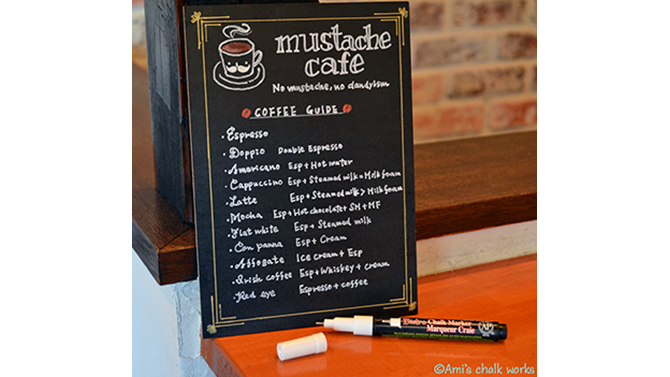 mustache
cafe
No mustache, no dandyism
COFFEE GUIDE
· Espresso
· Doppio Double Espresso
· Americano Esp + Hot water
· Cappuccino Esp + Steamed milk = Milk foam
· Latte Esp + Steamed milk > Milk foam
· Mocha Esp + Hot chocolate + SM + MF
· Flat white Esp + Steamed milk
· Con panna Esp + Cream
· Affogato Ice cream + Esp
· Irish coffee Esp + Whiskey + cream
· Red eye Espresso + coffee
Bistro Chalk Marker
Marqueur Craie
©Ami's chalk works